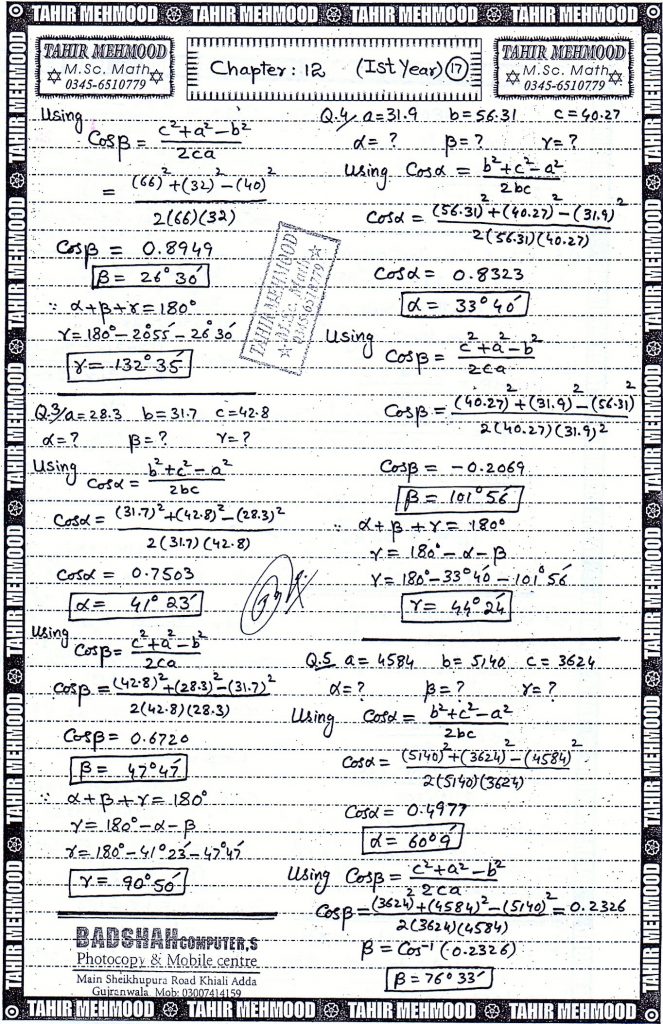 TAHIR MEHMOOD TAHIR MEHMOOD TAHIR MEHMOOD TAHIR MEHMOOD
TAHIR MEHMOOD
M.Sc. Math
0345-6510779
Chapter: 12 (Ist Year) 17
TAHIR MEHMOOD
M.Sc. Math
0345-6510779
Using
Cosβ = c²+a²-b² / 2ca
= (66)²+(32)²-(40)² / 2(66)(32)
Cosβ = 0.8949
β = 26°30′
∵ α+β+γ=180°
γ=180°-20°55′-26°30′
γ= 132°35′
Q.3/ a=28.3 b=31.7 c=42.8
α=? β=? γ=?
Using
Cosα = b²+c²-a² / 2bc
Cosα = (31.7)²+(42.8)²-(28.3)² / 2(31.7)(42.8)
Cosα = 0.7503
α= 41°23′
Using
Cosβ= c²+a²-b² / 2ca
Cosβ = (42.8)²+(28.3)²-(31.7)² / 2(42.8)(28.3)
Cosβ= 0.6720
β = 47°47′
∵ α+β+γ=180°
γ= 180°-α-β
γ=180°-41°23′-47°47′
γ = 90°50′
BADSHAH COMPUTER,S
Photocopy & Mobile centre
Main Sheikhupura Road Khiali Adda
Gujranwala. Mob: 03007414159
Q.4/ a=31.9 b=56.31 c=40.27
α=? β=? γ=?
Using Cosα = b²+c²-a² / 2bc
Cosα = (56.31)²+(40.27)²-(31.9)² / 2(56.31)(40.27)
Cosα= 0.8323
α= 33°40′
Using
Cosβ= c²+a²-b² / 2ca
Cosβ= (40.27)²+(31.9)²-(56.31)² / 2(40.27)(31.9)²
Cosβ= -0.2069
β= 101°56′
∵ α+β+γ= 180°
γ= 180°-α-β
γ=180°-33°40′-101°56′
γ= 44°24′
Q.5 a= 4584 b= 5140 c= 3624
α=? β=? γ=?
Using Cosα= b²+c²-a² / 2bc
Cosα= (5140)²+(3624)²-(4584)² / 2(5140)(3624)
Cosα= 0.4977
α= 60°9′
Using Cosβ= c²+a²-b² / 2ca
Cosβ= (3624)²+(4584)²-(5140)² / 2(3624)(4584) = 0.2326
β = Cos⁻¹(0.2326)
β= 76°33′
TAHIR MEHMOOD
M.Sc. Math
03456510779
TAHIR MEHMOOD TAHIR MEHMOOD TAHIR MEHMOOD TAHIR MEHMOOD
TAHIR MEHMOOD TAHIR MEHMOOD TAHIR MEHMOOD TAHIR MEHMOOD TAHIR MEHMOOD TAHIR MEHMOOD
TAHIR MEHMOOD TAHIR MEHMOOD TAHIR MEHMOOD TAHIR MEHMOOD TAHIR MEHMOOD TAHIR MEHMOOD